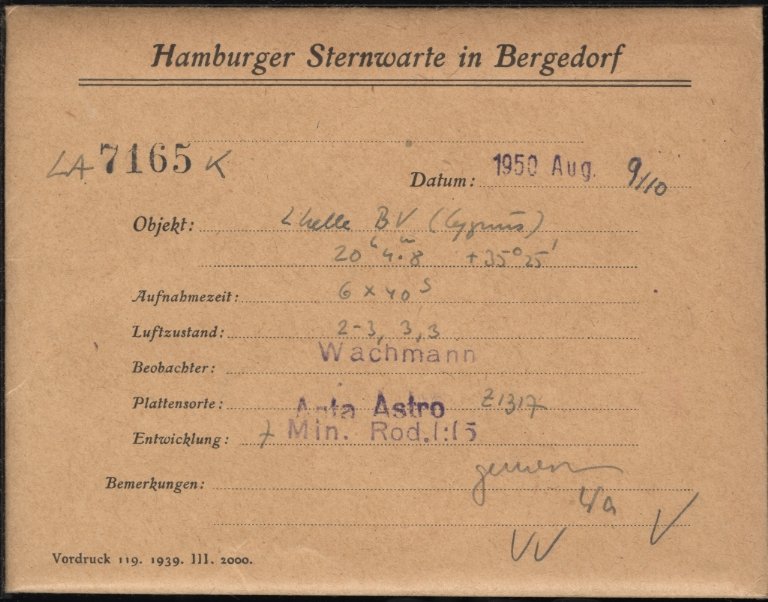 Hamburger Sternwarte in Bergedorf
LA 7165 K
Datum: 1950 Aug. 9/10
Objekt: 2 helle BV (Cygnus)
20ʰ4ᵐ.8 +35°25'
Aufnahmezeit: 6 x 40ˢ
Luftzustand: 2-3, 3, 3
Beobachter: Wachmann
Plattensorte: Agfa Astro Z1317
Entwicklung: 7 Min. Rod. 1:15
Bemerkungen: gemessen
Wa
V V V
Vordruck 119. 1939. III. 2000.